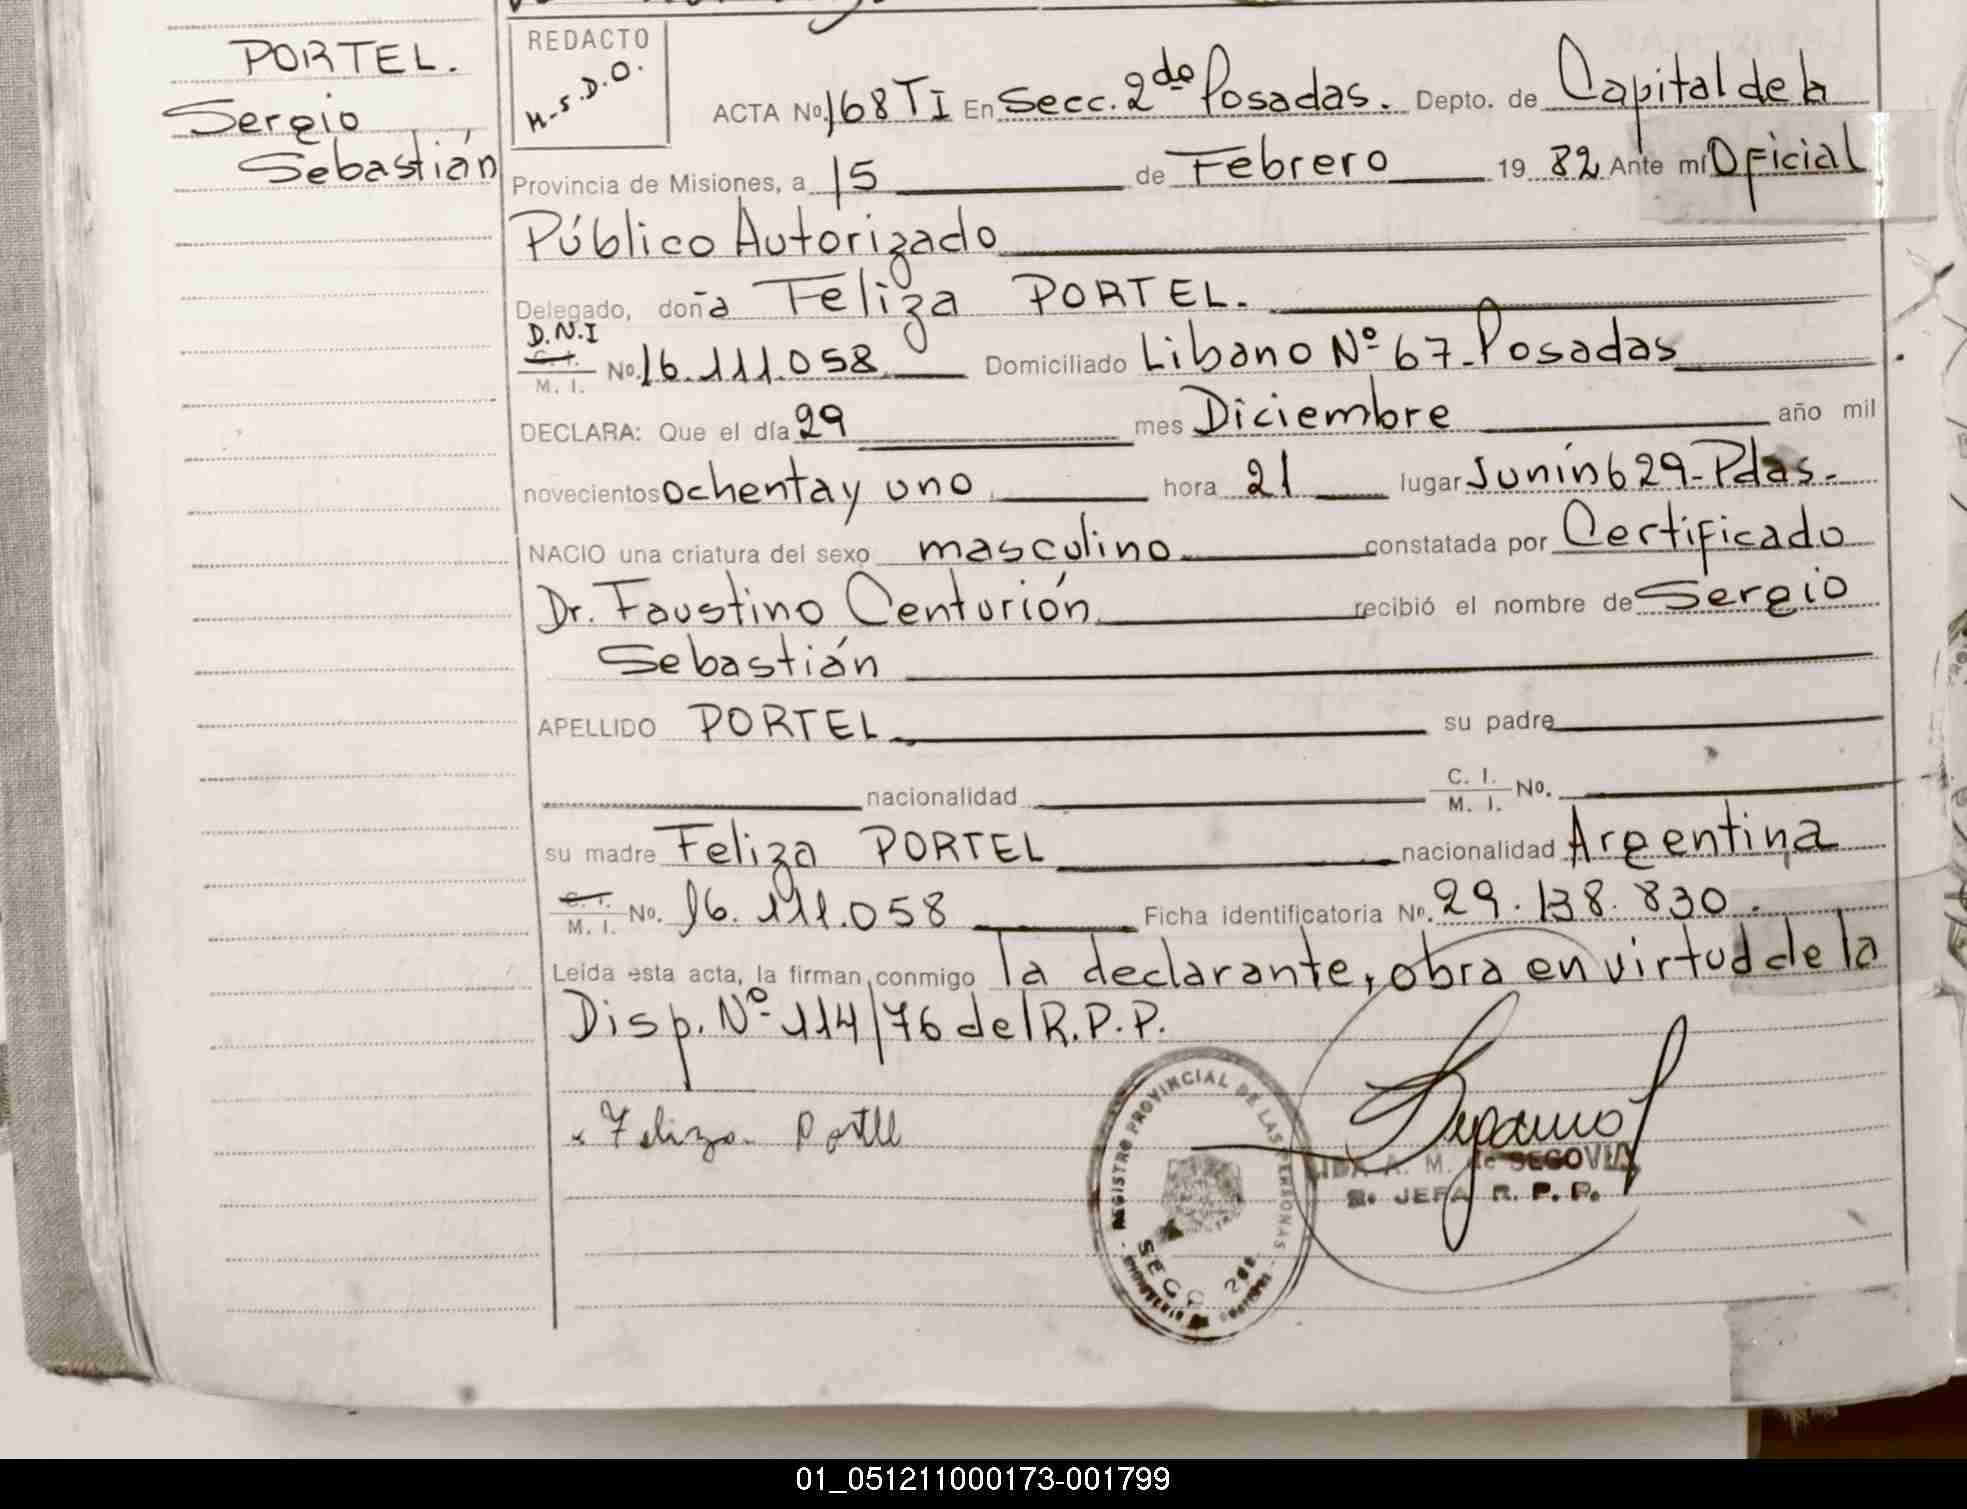 PORTEL.
Sergio
Sebastián
REDACTO
M-S.D.O.
ACTA No. 168 TI En Secc. 2do Posadas. Depto. de Capital de la
Provincia de Misiones, a 15 de Febrero 19 82 Ante mí Oficial
Público Autorizado
Delegado, doña Feliza PORTEL.
D.N.I
C. I.
M. I. No. 16.111.058 Domiciliado Libano Nº 67-Posadas
DECLARA: Que el día 29 mes Diciembre año mil
novecientos ochenta y uno hora 21 lugar Junín 629-Pdas.
NACIO una criatura del sexo masculino constatada por Certificado
Dr. Faustino Centurión recibió el nombre de Sergio
Sebastián
APELLIDO PORTEL su padre
nacionalidad C. I. M. I. No.
su madre Feliza PORTEL nacionalidad Argentina
C. I.
M. I. No. 16.111.058 Ficha identificatoria No. 29.138.830.
Leída esta acta, la firman conmigo la declarante, obra en virtud de la
Disp. Nº 114/76 del R.P.P.
Feliza Portel
REGISTRO PROVINCIAL DE LAS PERSONAS
SECC 2da
A. M. de SEGOVIA
JEFA R. P. P.
01_051211000173-001799